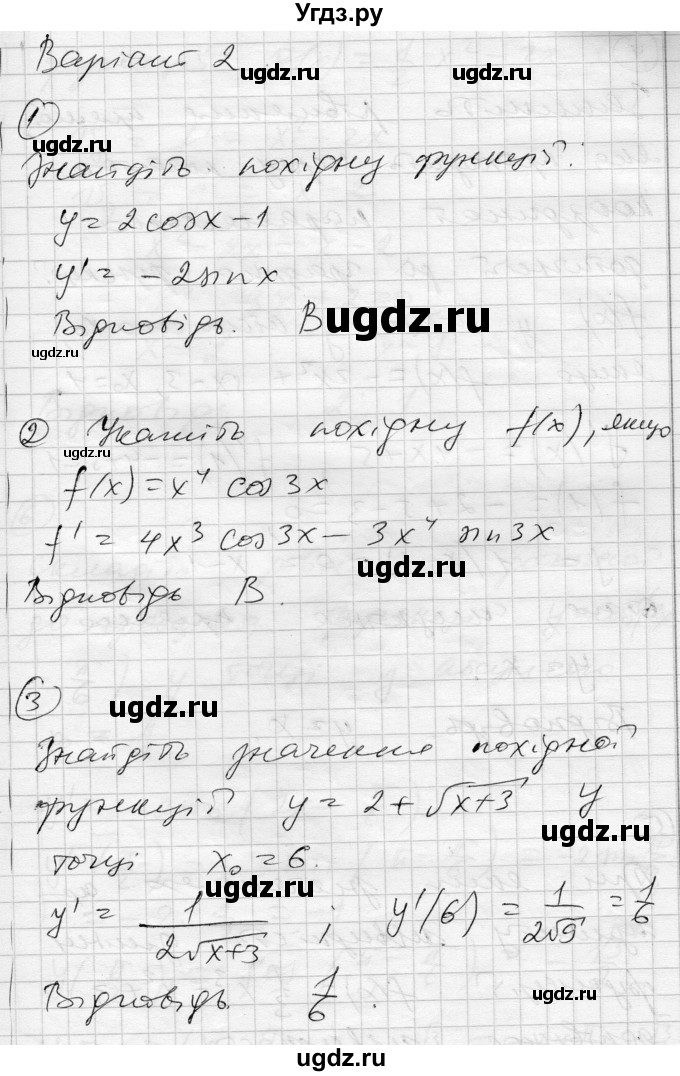 Угдз.ру
Варіант 2
ugdz.ru ugdz.ru
1
ugdz.ru
Знайдіть похідну функції:
y = 2cosx - 1
ugdz.ru
y' = - 2sinx
Відповідь. В
ugdz.ru
ugdz.ru
2 Укажіть похідну f(x), якщо
ugdz.ru
f(x) = x⁴ cos 3x
f' = 4x³ cos 3x - 3x⁴ sin 3x
ugdz.ru
Відповідь В.
3
ugdz.ru
Знайдіть значення похідної
функції y = 2 + √(x+3) у
ugdz.ru
точці x₀ = 6.
ugdz.ru
y' = 1/(2√(x+3)) ; y'(6) = 1/(2√9) = 1/6
Відповідь. 1/6.
ugdz.ru
ugdz.ru